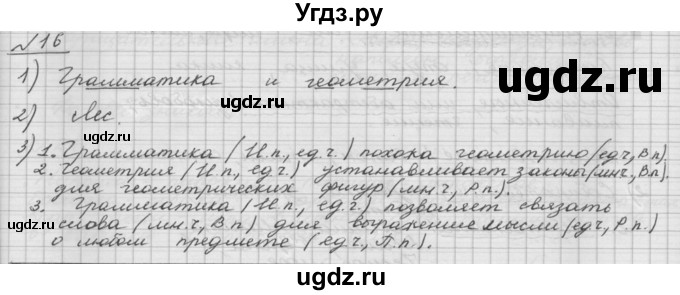 Угдз.ру
№16
1) Грамматика и геометрия.
2) Лес.
3) 1. Грамматика (И.п., ед.ч.) похожа геометрию (ед.ч, В.п).
2. Геометрия (И.п, ед.ч.) устанавливает законы (мн.ч, В.п).
для геометрических фигур (мн.ч, Р.п.).
3. Грамматика (И.п, ед.ч.) позволяет связать
слова (мн.ч, В.п) для выражение мысли (ед.ч, Р.п.)
о любом предмете (ед.ч, П.п.).
ugdz.ru
ugdz.ru
ugdz.ru
ugdz.ru
ugdz.ru
ugdz.ru
ugdz.ru